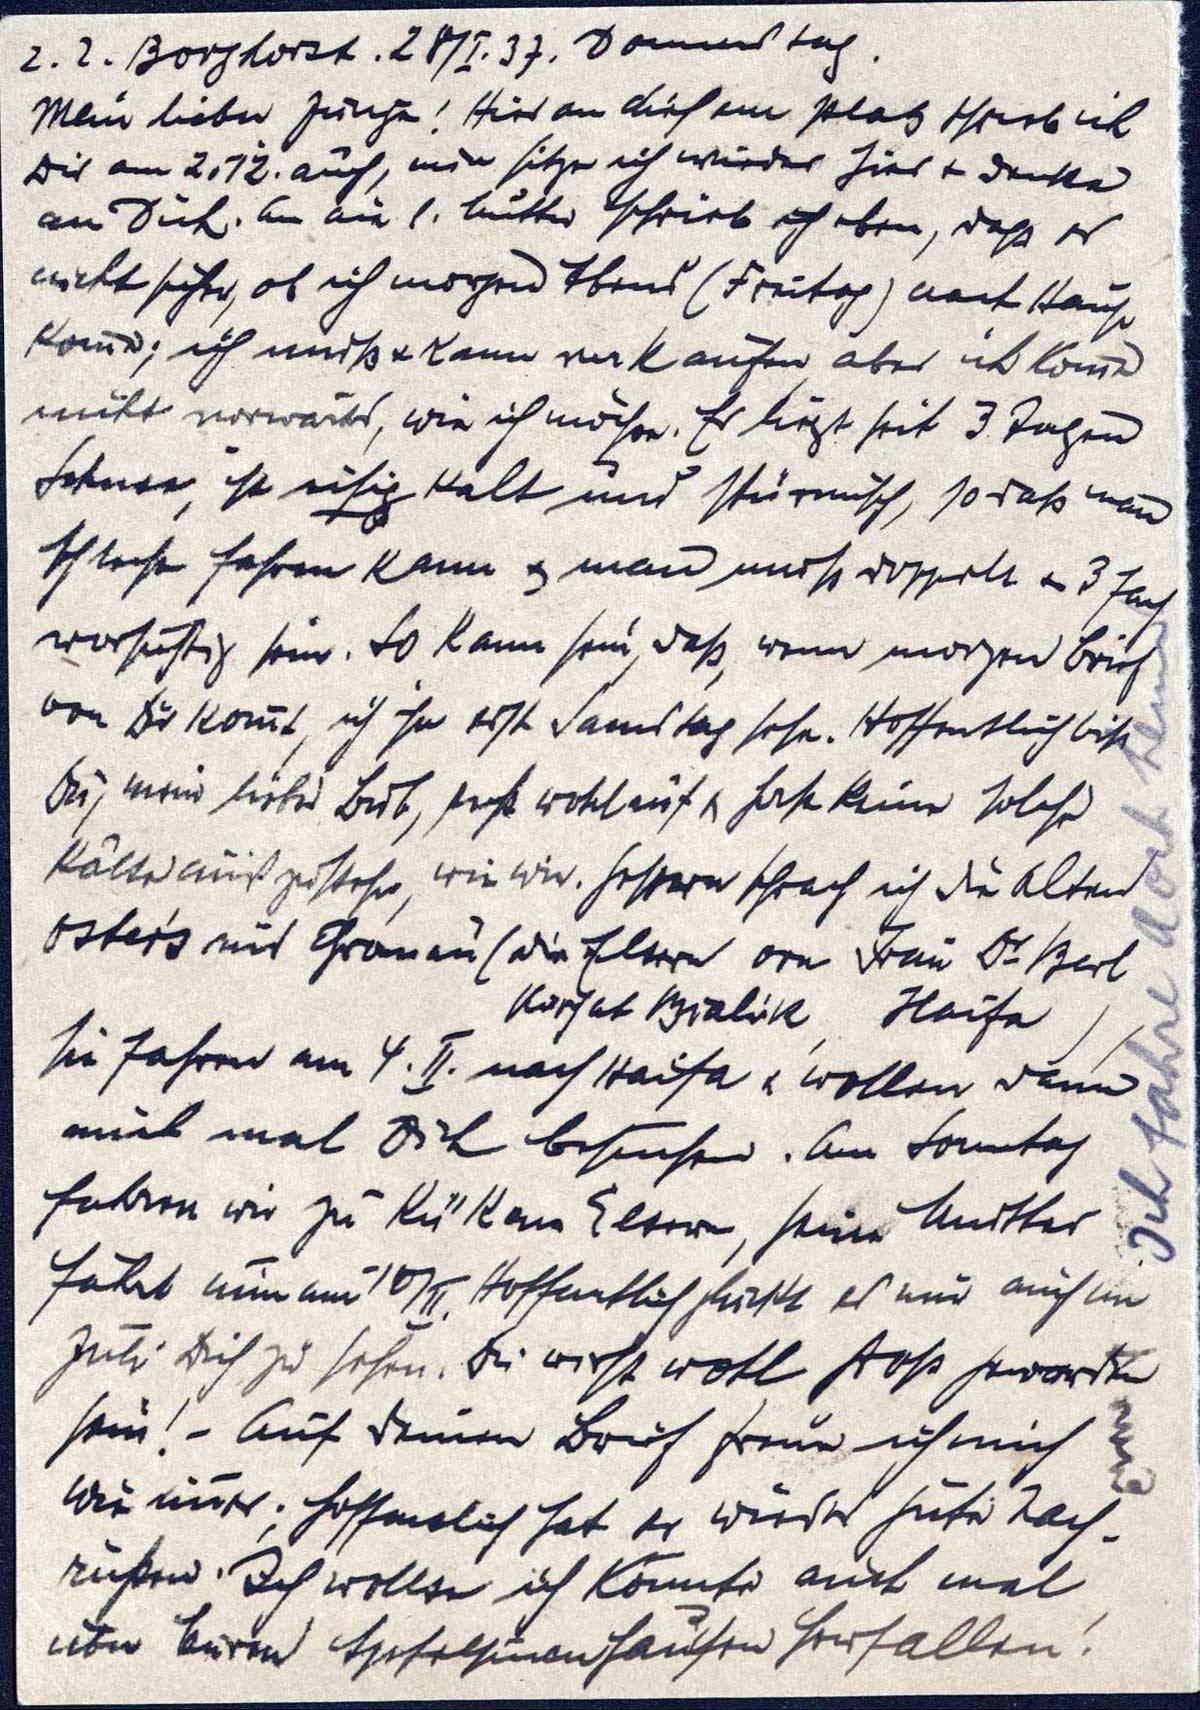 z. Z. Borghorst. 28/I.37. Donnerstag.
Mein lieber Junge! Hier an diesem Platz schrieb ich
Dir am 2.12. auch, nun sitze ich wieder hier & denke
an Dich. An die l. Mutter schrieb ich eben, daß es
nicht sicher, ob ich morgen Abend (Freitag) nach Hause
kom̄e; ich muß & kann verkaufen, aber ich kom̄e
nicht vorwärts, wie ich möchte. Es liegt seit 3 Tagen
Schnee, ist eisig kalt und stürmisch, so daß man
schlecht fahren kann & man muß doppelt & 3 fach
vorsichtig sein. So kann sein, daß, wenn morgen Brief
von Dir kom̄t, ich ihn erst Samstag sehe. Hoffentlich bist
Du, mein lieber Bub, recht wohlauf & hast keine solche
Kälte auszustehen, wie wir. Gestern sprach ich die alten
Oster's aus Gronau (die Eltern von Frau Dr Berl
Kirjat Bialik, Haifa)
Sie fahren am 4.II. nach Haifa & wollen dann
auch mal Dich besuchen. Am Sonntag
fahren wir zu Kü"Kens Eltern, seine Mutter
fährt nun am 10/II. Hoffentlich glückt es mir auch im
Juli Dich zu sehen. Du wirst wohl groß geworden
sein! – Auf deinen Brief freue ich mich
wie im̄er; hoffentlich hat er wieder gute Nach-
richten. Ich wollte ich könnte auch mal
über Euren Apfelsinenhaufen herfallen!
Ich fahre dort